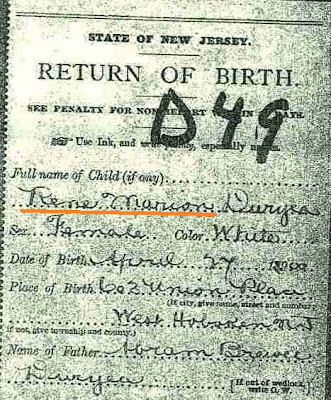 STATE OF NEW JERSEY.
RETURN OF BIRTH.
SEE PENALTY FOR NON-REPORT IN DAYS.
D49
Use Ink, and write, especially
Full name of Child (if any)
Duryea
Sex Female Color White
Date of Birth April 27
Place of Birth Union Place
(If city, give name, street and number;
West Hoboken N J
if not, give township and county.)
Name of Father Abram Brower
Duryea
[If out of wedlock,
write O. W.